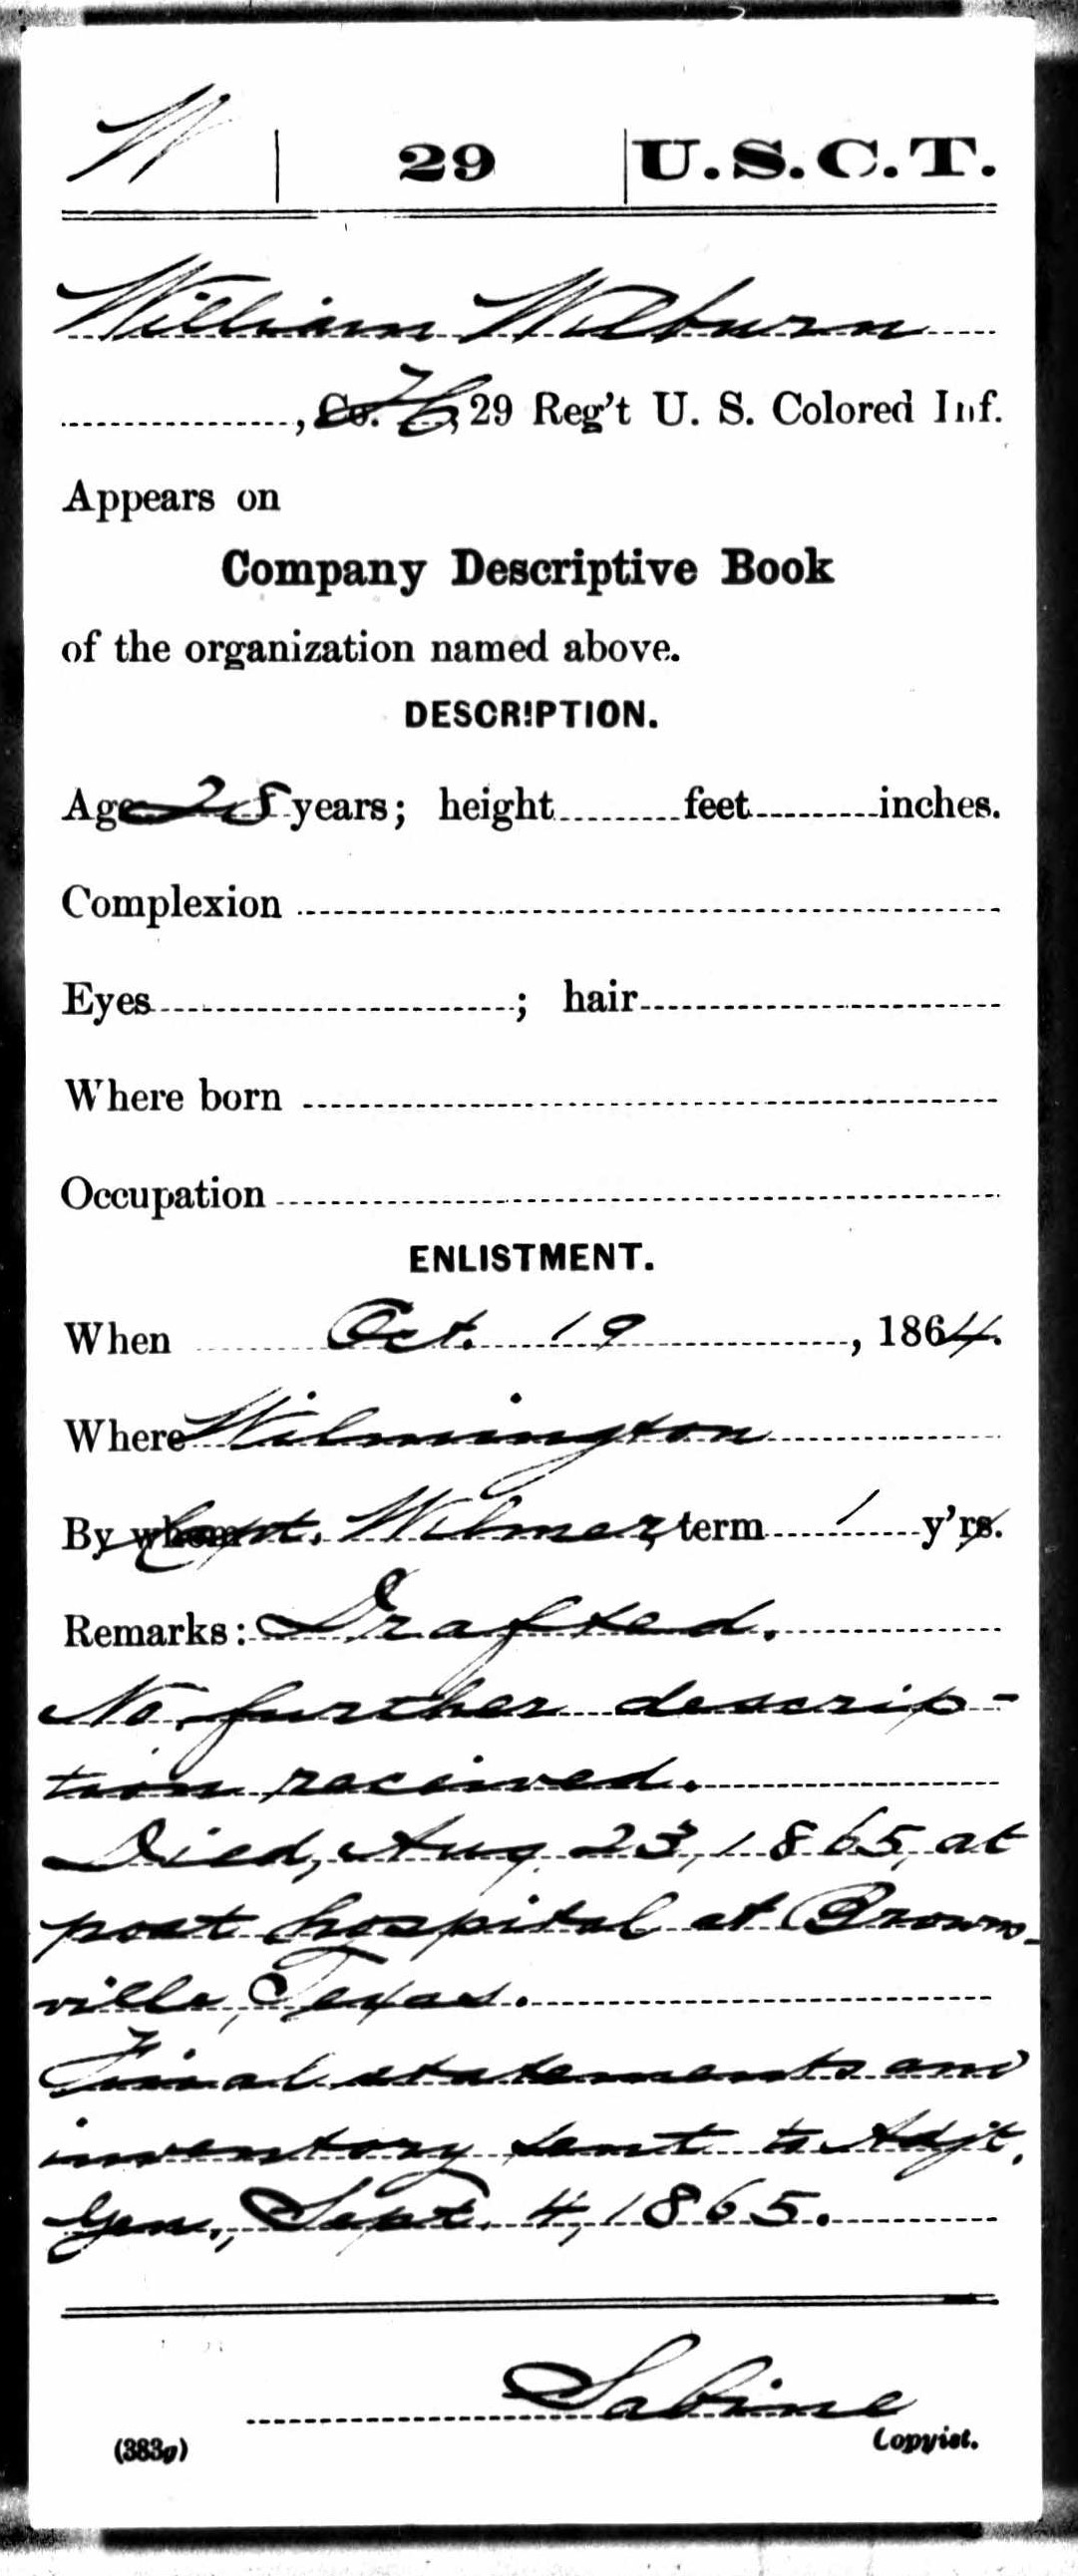 W | 29 | U.S.C.T.
William Wilburn
, Co. H, 29 Reg't U. S. Colored Inf.
Appears on
Company Descriptive Book
of the organization named above.
DESCRIPTION.
Age 25 years; height feet inches.
Complexion
Eyes ; hair
Where born
Occupation
ENLISTMENT.
When Oct. 19, 1864.
Where Wilmington
By whom Capt. Wilmer, term 1 y'rs.
Remarks: Drafted.
No further descrip-
tion received.
Died, Aug 23, 1865, at
post hospital at Browns-
ville, Texas.
Final statements and
inventory sent to Adjt.
Gen., Sept. 4, 1865.
Sabine
(383g) Copyist.